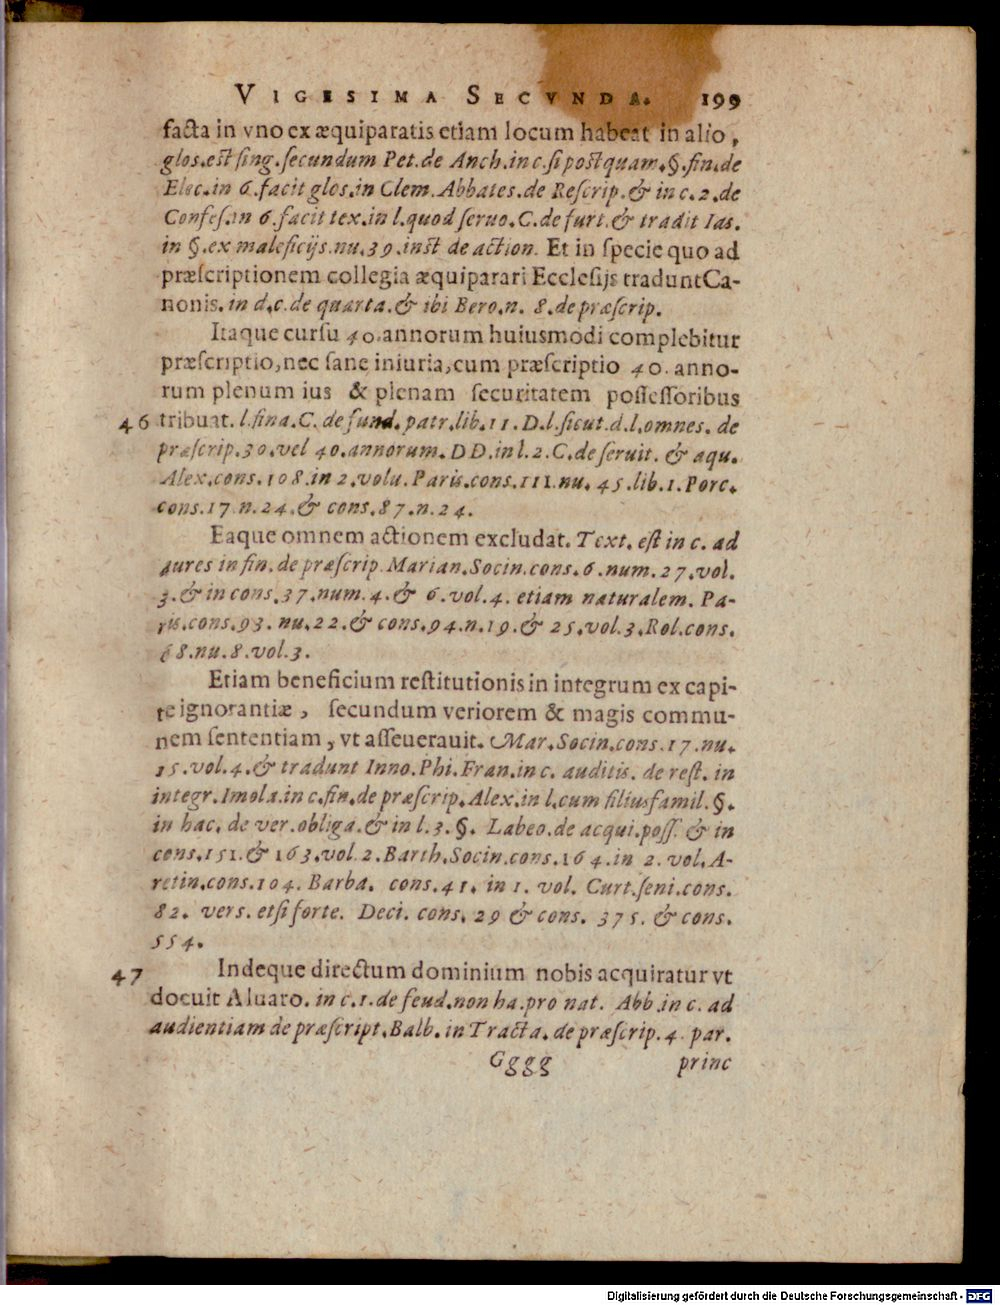 VIGESIMA SECVNDA. 199
facta in vno ex æquiparatis etiam locum habeat in alio,
glos.est sing.secundum Pet.de Anch.in c.si postquam.§.fin.de
Elec.in 6.facit glos.in Clem.Abbates.de Rescrip.& in c.2.de
Confes.in 6.facit tex.in l.quod seruo.C.de furt.& tradit Ias.
in §.ex maleficijs.nu.39.inst de action. Et in specie quo ad
præscriptionem collegia æquiparari Ecclesijs tradunt Ca-
nonis.in d.c.de quarta.& ibi Bero.n. 8.de præscrip.
Itaque cursu 40.annorum huiusmodi complebitur
præscriptio,nec sane iniuria,cum præscriptio 40. anno-
rum plenum ius & plenam securitatem possessoribus
46 tribuat.l.fina.C.de fund.patr.lib.11.D.l.sicut.d.l.omnes. de
præscrip.30.vel 40.annorum.DD.in l.2.C.de seruit. & aqu.
Alex.cons.108.in 2.volu.Paris.cons.111.nu.45.lib.1.Porc.
cons.17 n.24.& cons.87.n.24.
Eaque omnem actionem excludat. Text. est in c. ad
aures in fin.de præscrip.Marian.Socin.cons.6.num.27.vol.
3.& in cons.37.num.4.& 6.vol.4. etiam naturalem. Pa-
ris.cons.93. nu.22.& cons.94.n.19.& 25.vol.3.Rol.cons.
68.nu.8.vol.3.
Etiam beneficium restitutionis in integrum ex capi-
te ignorantiæ, secundum veriorem & magis commu-
nem sententiam, vt asseuerauit. Mar.Socin.cons.17.nu.
15.vol.4.& tradunt Inno.Phi.Fran.in c. auditis. de rest. in
integr.Imola.in c.fin.de præscrip.Alex.in l.cum filiusfamil.§.
in hac. de ver.obliga.& in l.3.§. Labeo.de acqui.poss. & in
cons.151.& 163.vol 2.Barth.Socin.cons.164.in 2. vol.A-
retin.cons.104. Barba. cons.41. in 1. vol. Curt.seni.cons.
82. vers. etsi forte. Deci. cons. 29 & cons. 375. & cons.
554.
47 Indeque directum dominium nobis acquiratur vt
docuit Aluaro. in c.1.de feud.non ha.pro nat. Abb.in c. ad
audientiam de præscript.Balb. in Tracta. de præscrip.4. par.
Gggg princ
Digitalisierung gefördert durch die Deutsche Forschungsgemeinschaft - DFG